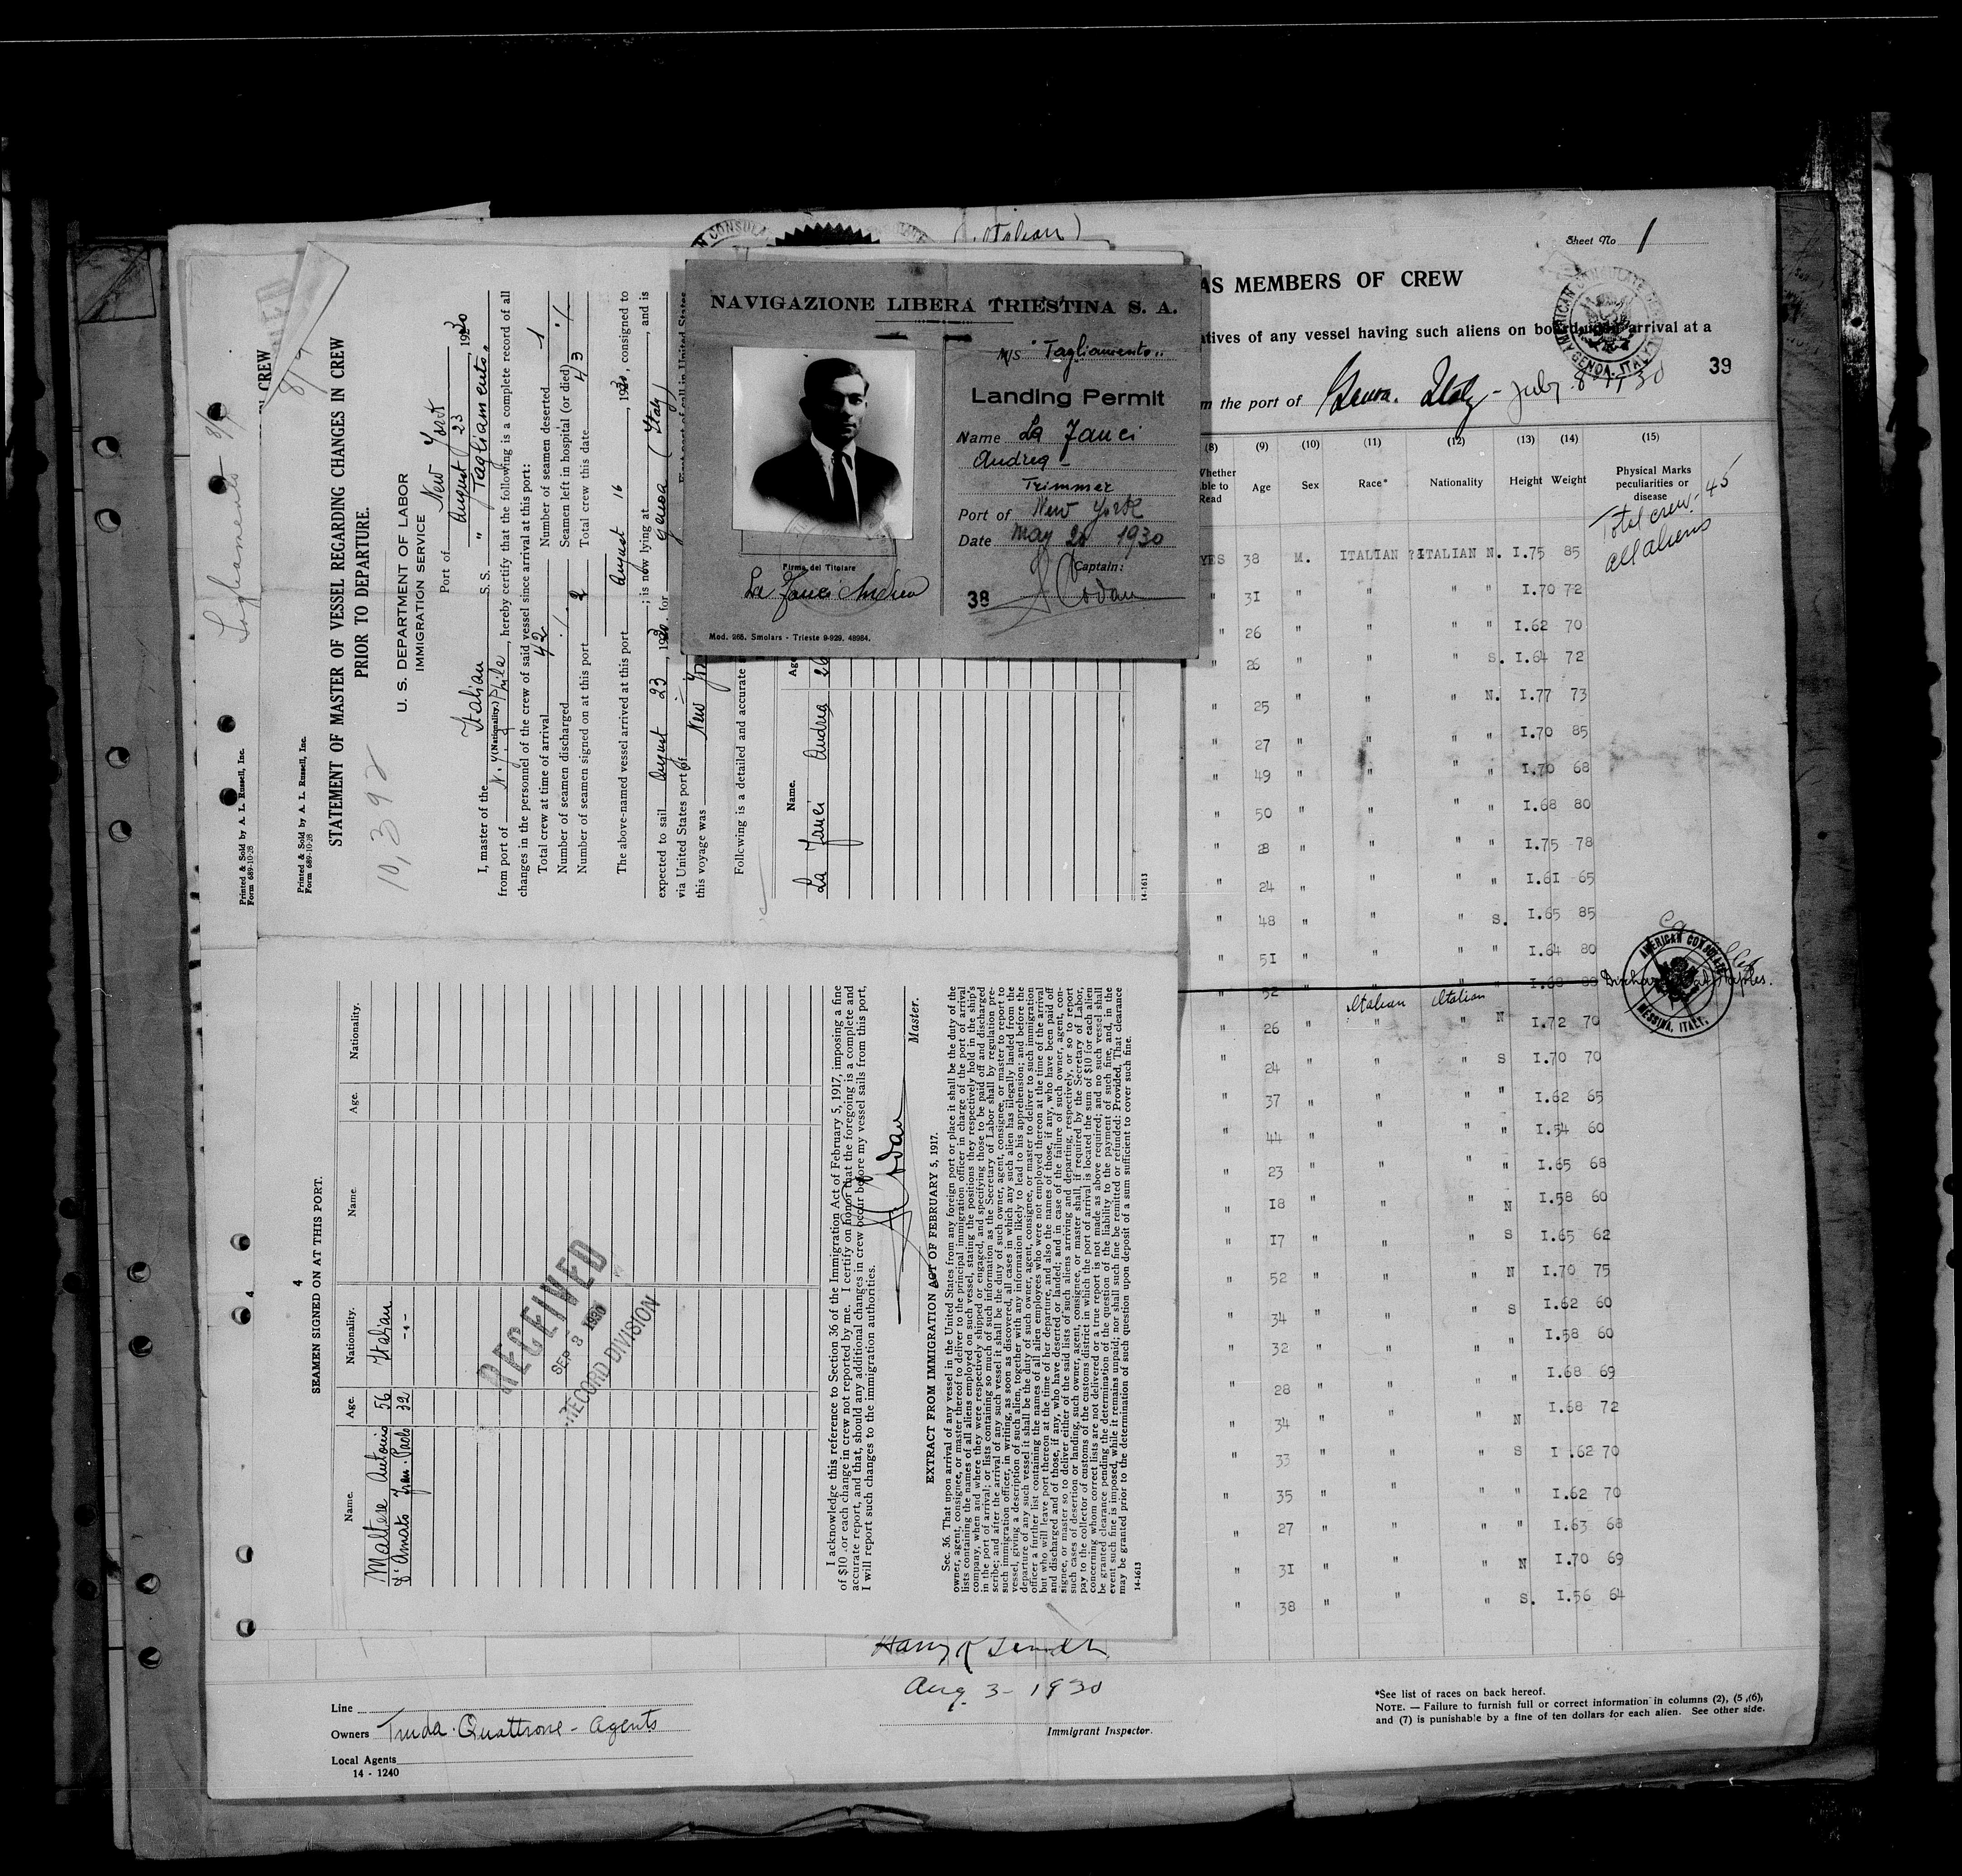 Sheet No 1
AS MEMBERS OF CREW
atives of any vessel having such aliens on board upon arrival at a
m the port of Genoa. Italy - July 8 - 1930
39
AMERICAN CONSULATE
GENOA, ITALY
(Italian)
NAVIGAZIONE LIBERA TRIESTINA S. A.
M/S "Tagliamento"
Landing Permit
Name La Fauci
Andrea -
Trimmer
Port of New York
Date May 20 1930
Captain:
38 A Codau
Firma del Titolare
La Fauci Andrea
Mod. 268. Smolars - Trieste 9-929. 48984.
(8) (9) (10) (11) (12) (13) (14) (15)
Whether able to Read Age Sex Race* Nationality Height Weight Physical Marks peculiarities or disease
Total crew - 45
all aliens
YES 38 M. ITALIAN ITALIAN N. I.75 85
" 3I " " " I.70 72
" 26 " " " " I.62 70
" 26 " " " S. I.64 72
" 25 " " " N. I.77 73
" 27 " " " " I.70 85
" 49 " " " " I.70 68
" 50 " " " " I.68 80
" 28 " " " " I.75 78
" 24 " " " " I.6I 65
" 48 " " " S. I.65 85
" 5I " " " " I.64 80
" 52 I.68 80 Discharged at Naples.
Italian Italian
" 26 " " " N I.72 70
" 24 " " " S I.70 70
" 37 " " " " I.62 65
" 44 " " " " I.54 60
" 23 " " " " I.65 68
" I8 " " " N I.58 60
" I7 " " " S I.65 62
" 52 " " " N I.70 75
" 34 " " " S I.62 60
" 32 " " " " I.58 60
" 28 " " " " I.68 69
" 34 " " " N I.68 72
" 33 " " " S I.62 70
" 35 " " " " I.62 70
" 27 " " " " I.63 68
" 3I " " " N I.70 69
" 38 " " " S. I.56 64
AMERICAN CONSULATE
MESSINA, ITALY.
Printed & Sold by A. L. Russell, Inc.
Form 689-10-28
Printed & Sold by A. L. Russell, Inc.
Form 689-10-28
IN CREW
STATEMENT OF MASTER OF VESSEL REGARDING CHANGES IN CREW
PRIOR TO DEPARTURE.
10,392
U. S. DEPARTMENT OF LABOR
IMMIGRATION SERVICE
Port of New York
August 23, 1930
I, master of the Italian S. S. "Tagliamento"
(Nationality.)
from port of N. Y. Phila, hereby certify that the following is a complete record of all
changes in the personnel of the crew of said vessel since arrival at this port:
Total crew at time of arrival 42 Number of seamen deserted 1
Number of seamen discharged ./. Seamen left in hospital (or died) ./.
Number of seamen signed on at this port 2 Total crew this date 43
The above-named vessel arrived at this port August 16, 1930, consigned to
; is now lying at , and is
expected to sail August 23, 1930, for Genoa (Italy)
via United States port of First port of call in United States
this voyage was New York
Following is a detailed and accurate
Name. Age
La Fauci Andrea 26
14-1613
4
SEAMEN SIGNED ON AT THIS PORT.
Name. Age. Nationality. Name. Age. Nationality.
Maltese Antonio 56 Italian
D'Amato Fran. Paolo 32 -"-
RECEIVED
SEP 3 1930
RECORD DIVISION
I acknowledge this reference to Section 36 of the Immigration Act of February 5, 1917, imposing a fine
of $10 for each change in crew not reported by me. I certify on honor that the foregoing is a complete and
accurate report, and that, should any additional changes in crew occur before my vessel sails from this port,
I will report such changes to the immigration authorities.
A Codau
Master.
EXTRACT FROM IMMIGRATION ACT OF FEBRUARY 5, 1917.
Sec. 36. That upon arrival of any vessel in the United States from any foreign port or place it shall be the duty of the
owner, agent, consignee, or master thereof to deliver to the principal immigration officer in charge of the port of arrival
lists containing the names of all aliens employed on such vessel, stating the positions they respectively hold in the ship's
company, when and where they were respectively shipped or engaged, and specifying those to be paid off and discharged
in the port of arrival; or lists containing so much of such information as the Secretary of Labor shall by regulation pre-
scribe; and after the arrival of any such vessel it shall be the duty of such owner, agent, consignee, or master to report to
such immigration officer, in writing, as soon as discovered, all cases in which any such alien has illegally landed from the
vessel, giving a description of such alien, together with any information likely to lead to his apprehension; and before the
departure of any such vessel it shall be the duty of such owner, agent, consignee, or master to deliver to such immigration
officer a further list containing the names of all alien employees who were not employed thereon at the time of the arrival
but who will leave port thereon at the time of her departure, and also the names of those, if any, who have been paid off
and discharged and of those, if any, who have deserted or landed; and in case of the failure of such owner, agent, con-
signee, or master so to deliver either of the said lists of such aliens arriving and departing, respectively, or so to report
such cases of desertion or landing, such owner, agent, consignee, or master shall, if required by the Secretary of Labor,
pay to the collector of customs of the customs district in which the port of arrival is located the sum of $10 for each alien
concerning whom correct lists are not delivered or a true report is not made as above required; and no such vessel shall
be granted clearance pending the determination of the question of the liability to the payment of such fine, and, in the
event such fine is imposed, while it remains unpaid; nor shall such fine be remitted or refunded: Provided, That clearance
may be granted prior to the determination of such question upon deposit of a sum sufficient to cover such fine.
14-1613
Harry R
Aug 3 - 1930
Immigrant Inspector.
Line
Owners Truda. Quattrone - Agents
Local Agents
14 - 1240
*See list of races on back hereof.
NOTE. — Failure to furnish full or correct information in columns (2), (5), (6),
and (7) is punishable by a fine of ten dollars for each alien. See other side.